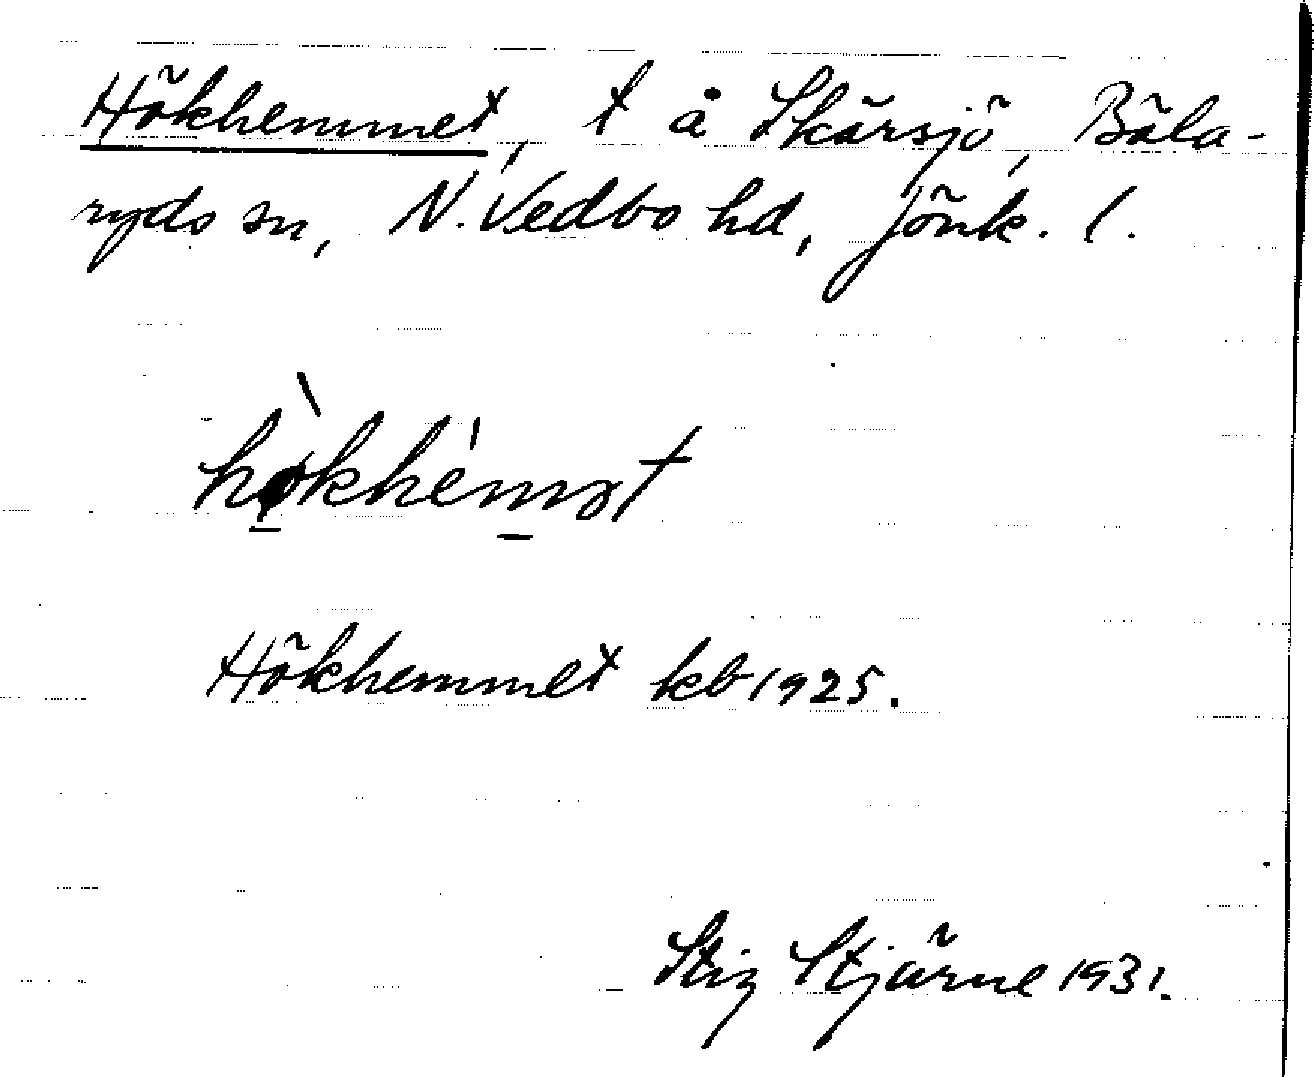 Hökhemmet, t å Skärsjö, Bäla-
ryds sn, N. Vedbo hd, Jönk. l.
hø̀khémət
Hökhemmet kb 1925.
Stig Stjärne 1931.